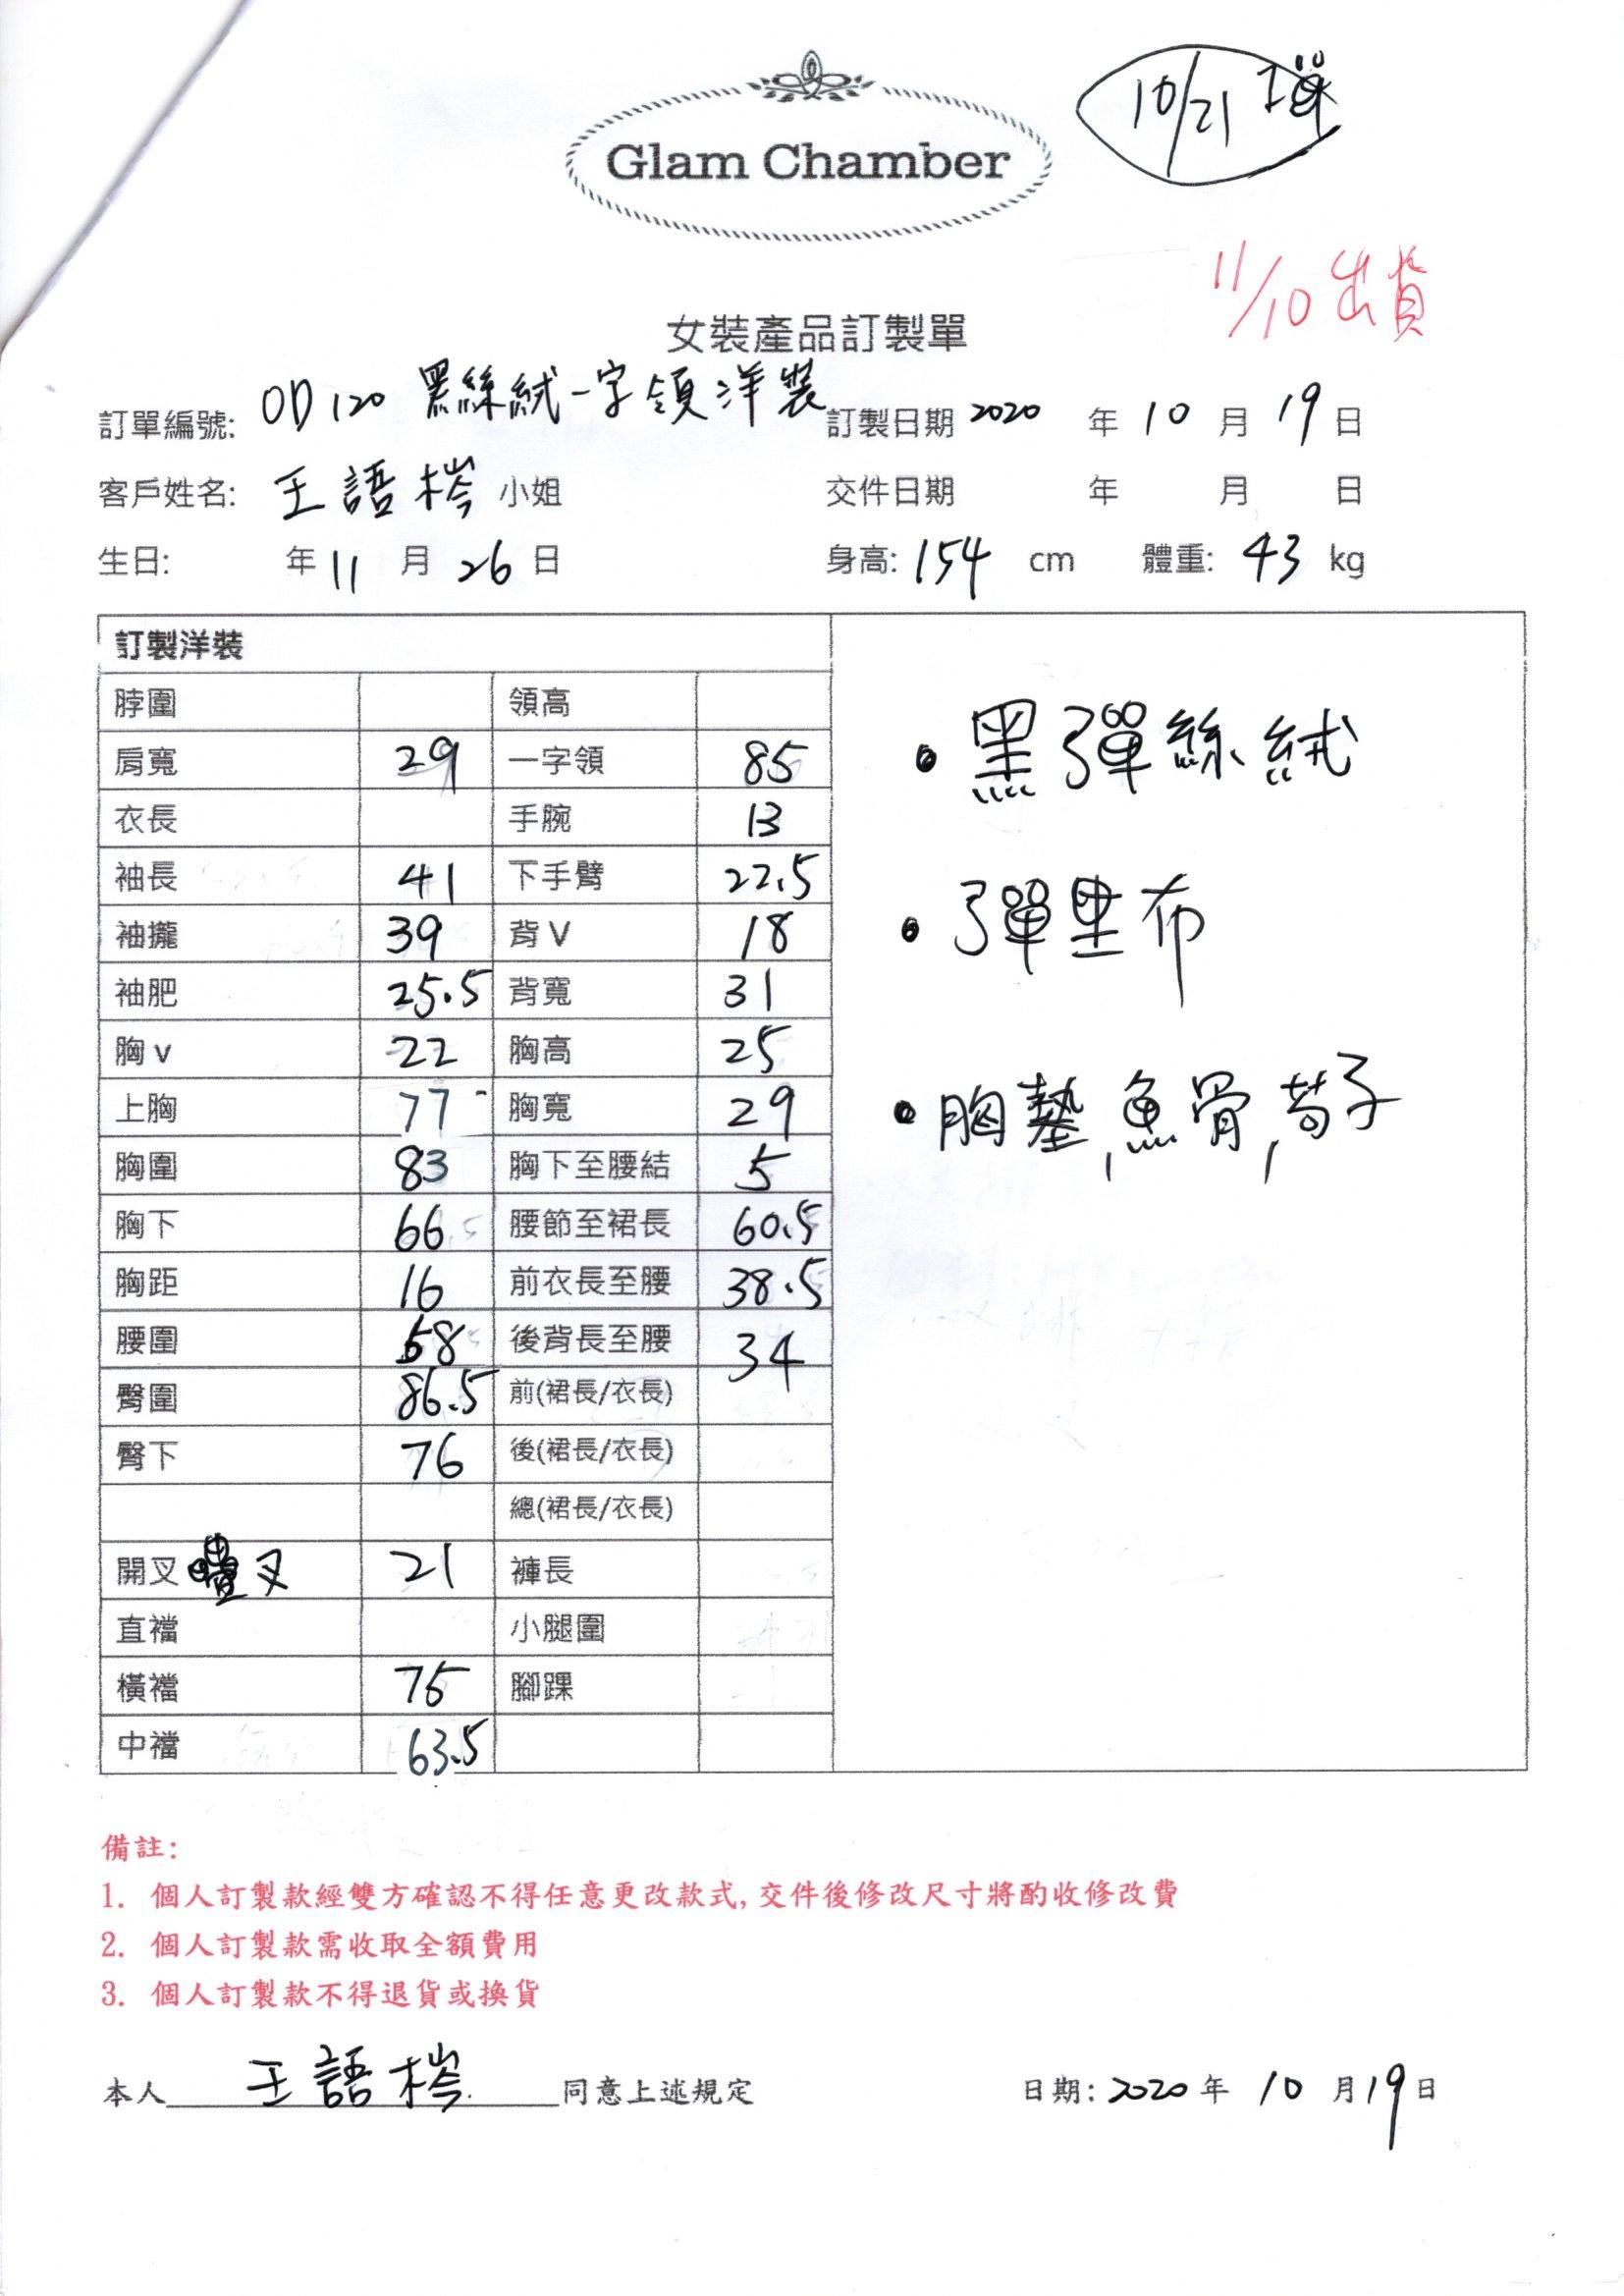 Glam Chamber
10/21
11/10 出貨
女裝產品訂製單
訂單編號: OD120 黑絲絨一字領洋裝 訂製日期 2020 年 10 月 19 日
客戶姓名: 王語梣 小姐 交件日期 年 月 日
生日: 年 11 月 26 日 身高: 154 cm 體重: 43 kg
訂製洋裝
脖圍 領高
肩寬 29 一字領 85
衣長 手腕 13
袖長 41 下手臂 22.5
袖攏 39 背V 18
袖肥 25.5 背寬 31
胸v 22 胸高 25
上胸 77 胸寬 29
胸圍 83 胸下至腰結 5
胸下 66 腰節至裙長 60.5
胸距 16 前衣長至腰 38.5
腰圍 58 後背長至腰 34
臀圍 86.5 前(裙長/衣長)
臀下 76 後(裙長/衣長)
總(裙長/衣長)
開叉 疊叉 21 褲長
直襠 小腿圍
橫襠 75 腳踝
中襠 63.5
• 黑彈絲絨
• 彈里布
• 胸墊,魚骨,苟子
備註:
1. 個人訂製款經雙方確認不得任意更改款式,交件後修改尺寸將酌收修改費
2. 個人訂製款需收取全額費用
3. 個人訂製款不得退貨或換貨
本人 王語梣 同意上述規定 日期: 2020 年 10 月 19 日